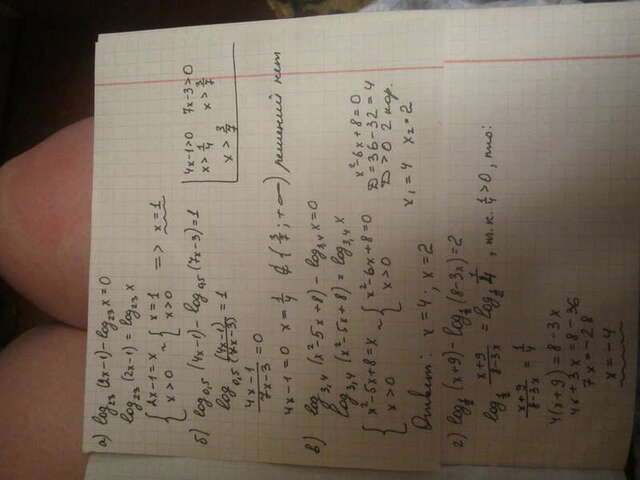 а) log₂₃ (2x-1) - log₂₃ x = 0
log₂₃ (2x-1) = log₂₃ x
{ 2x-1 = x ~ { x = 1 => x = 1
x > 0 x > 0
б) log₀,₅ (4x-1) - log₀,₅ (7x-3) = 1
log₀,₅ (4x-1)/(7x-3) = 1
(4x-1)/(7x-3) = 0
4x-1 = 0 x = 1/4 ∉ (3/7; +∞) решений нет
4x-1>0 7x-3>0
x > 1/4 x > 3/7
x > 3/7
в) log₃,₄ (x²-5x+8) - log₃,₄ x = 0
log₃,₄ (x²-5x+8) = log₃,₄ x
{ x²-5x+8 = x ~ { x²-6x+8 = 0
x > 0 x > 0
x²-6x+8 = 0
D = 36-32 = 4
D > 0 2 кор.
x₁ = 4 x₂ = 2
Ответ: x = 4; x = 2
г) log₁/₂ (x+9) - log₁/₂ (8-3x) = 2
log₁/₂ (x+9)/(8-3x) = log₁/₂ 1/4, т.к. 1/4 > 0, то:
(x+9)/(8-3x) = 1/4
4(x+9) = 8-3x
4x+3x = 8-36
7x = -28
x = -4